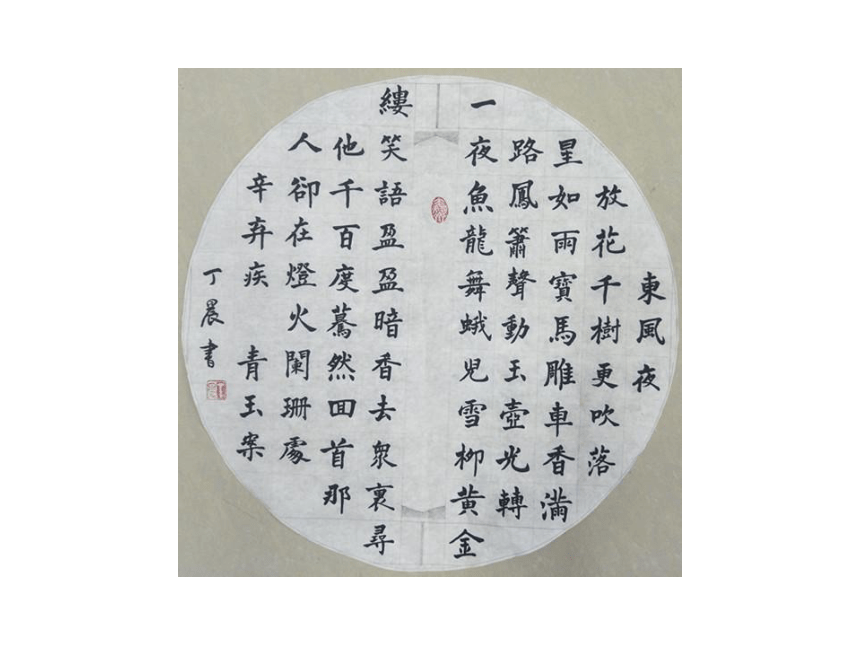 東風夜
放花千樹更吹落
星如雨寶馬雕車香滿
路鳳簫聲動玉壺光轉
一夜魚龍舞蛾兒雪柳黃金
縷笑語盈盈暗香去衆裏尋
他千百度驀然回首那
人卻在燈火闌珊處
辛弃疾 青玉案
丁晨書